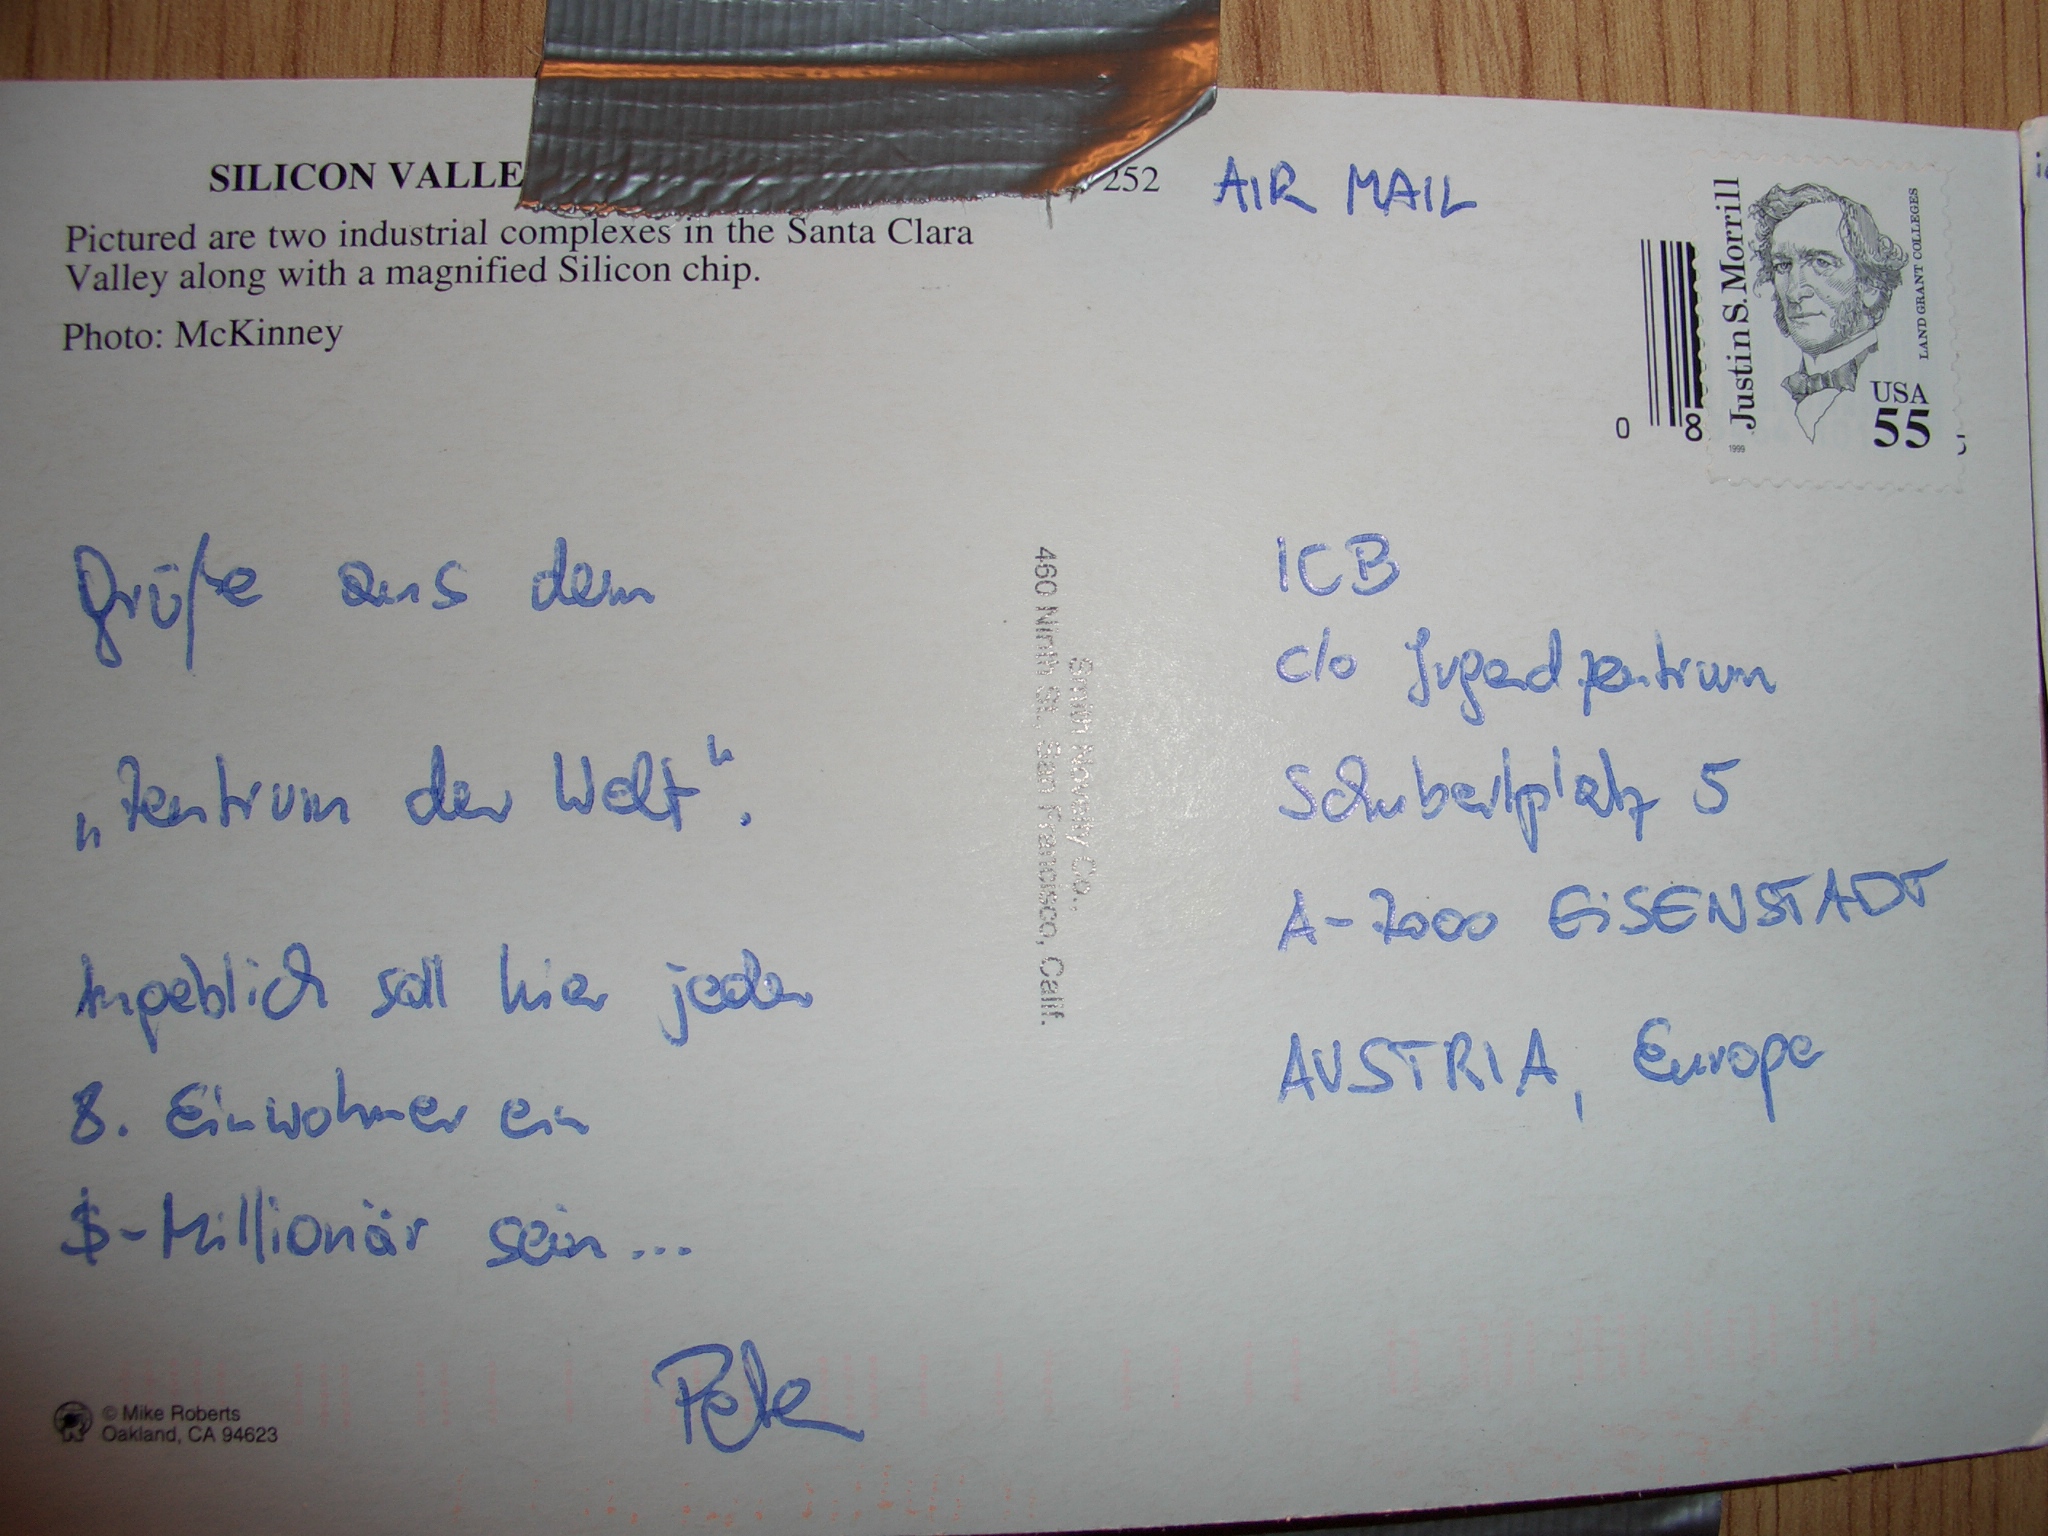 SILICON VALLE
252
Pictured are two industrial complexes in the Santa Clara
Valley along with a magnified Silicon chip.
Photo: McKinney
AIR MAIL
Justin S. Morrill
LAND GRANT COLLEGES
USA
55
1999
0
8
Grüße aus dem
„Zentrum der Welt".
Angeblich soll hier jeder
8. Einwohner ein
$-Millionär sein...
Peter
Smith Novelty Co.,
460 Ninth St. San Francisco, Calif.
ICB
c/o Jugendzentrum
Schubertplatz 5
A-7000 EiSENSTADT
AUSTRIA, Europe
© Mike Roberts
Oakland, CA 94623